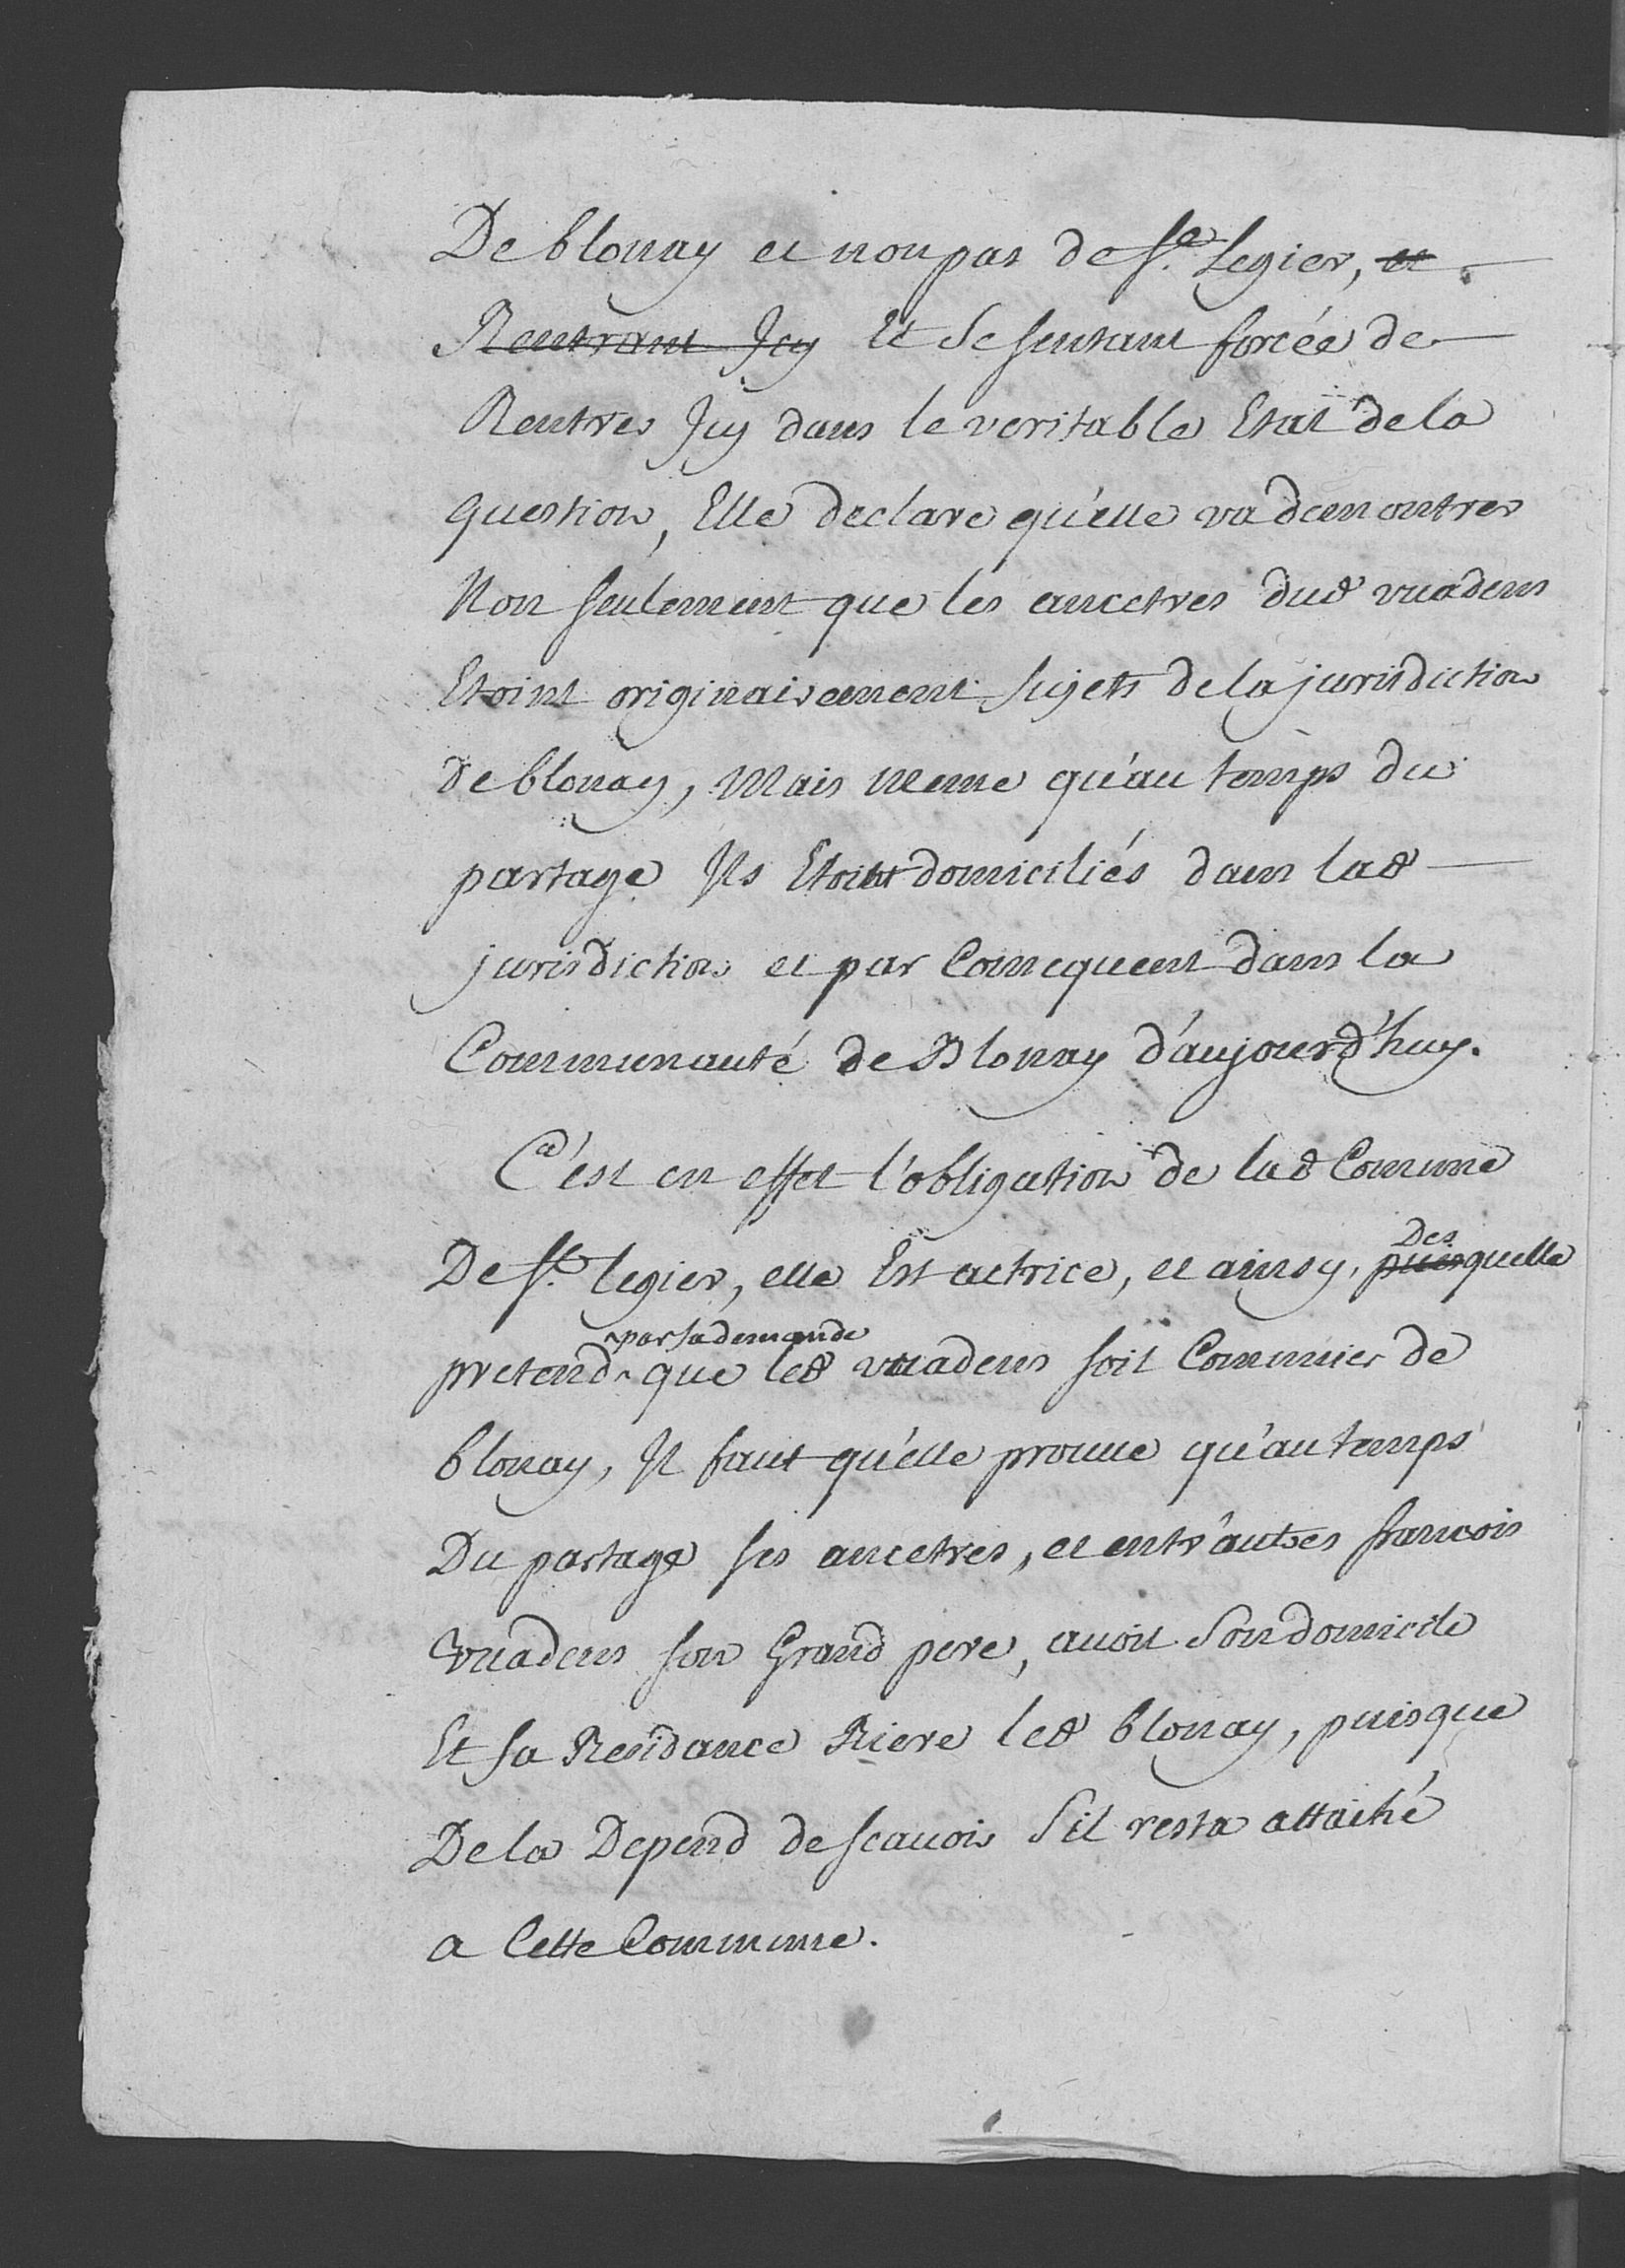 De blonay et non pas de St. Legier, et
Rentrant Icy Et Se sentant forcée de
Rentrer Icy dans le veritable Etat de la
question, Elle declare qu'elle va demontrer
Non seulement que les ancetres dud vuadens
Etoint originairement sujets de la jurisdiction
de blonay, Mais meme qu'au temps du
partage Ils Etoint domiciliés dans lad
jurisdiction et par Consequent dans la
Communauté de Blonay d'aujourd'huy.
C'est en effet l'obligation de lad Comune
De St. legier, elle Est actrice, et ainsy, puisquelle
Des
par sa demande
pretend que led vuadens soit Comunier de
blonay, Il faut qu'elle prouue qu'au temps
Du partage ses ancetres, et entr'autres francois
vuadens son Grand pere, auoit Son domicile
Et sa Residance Riere led blonay, puisque
De la Depend de scauoir S'il resta attaché
a Cette Commune.